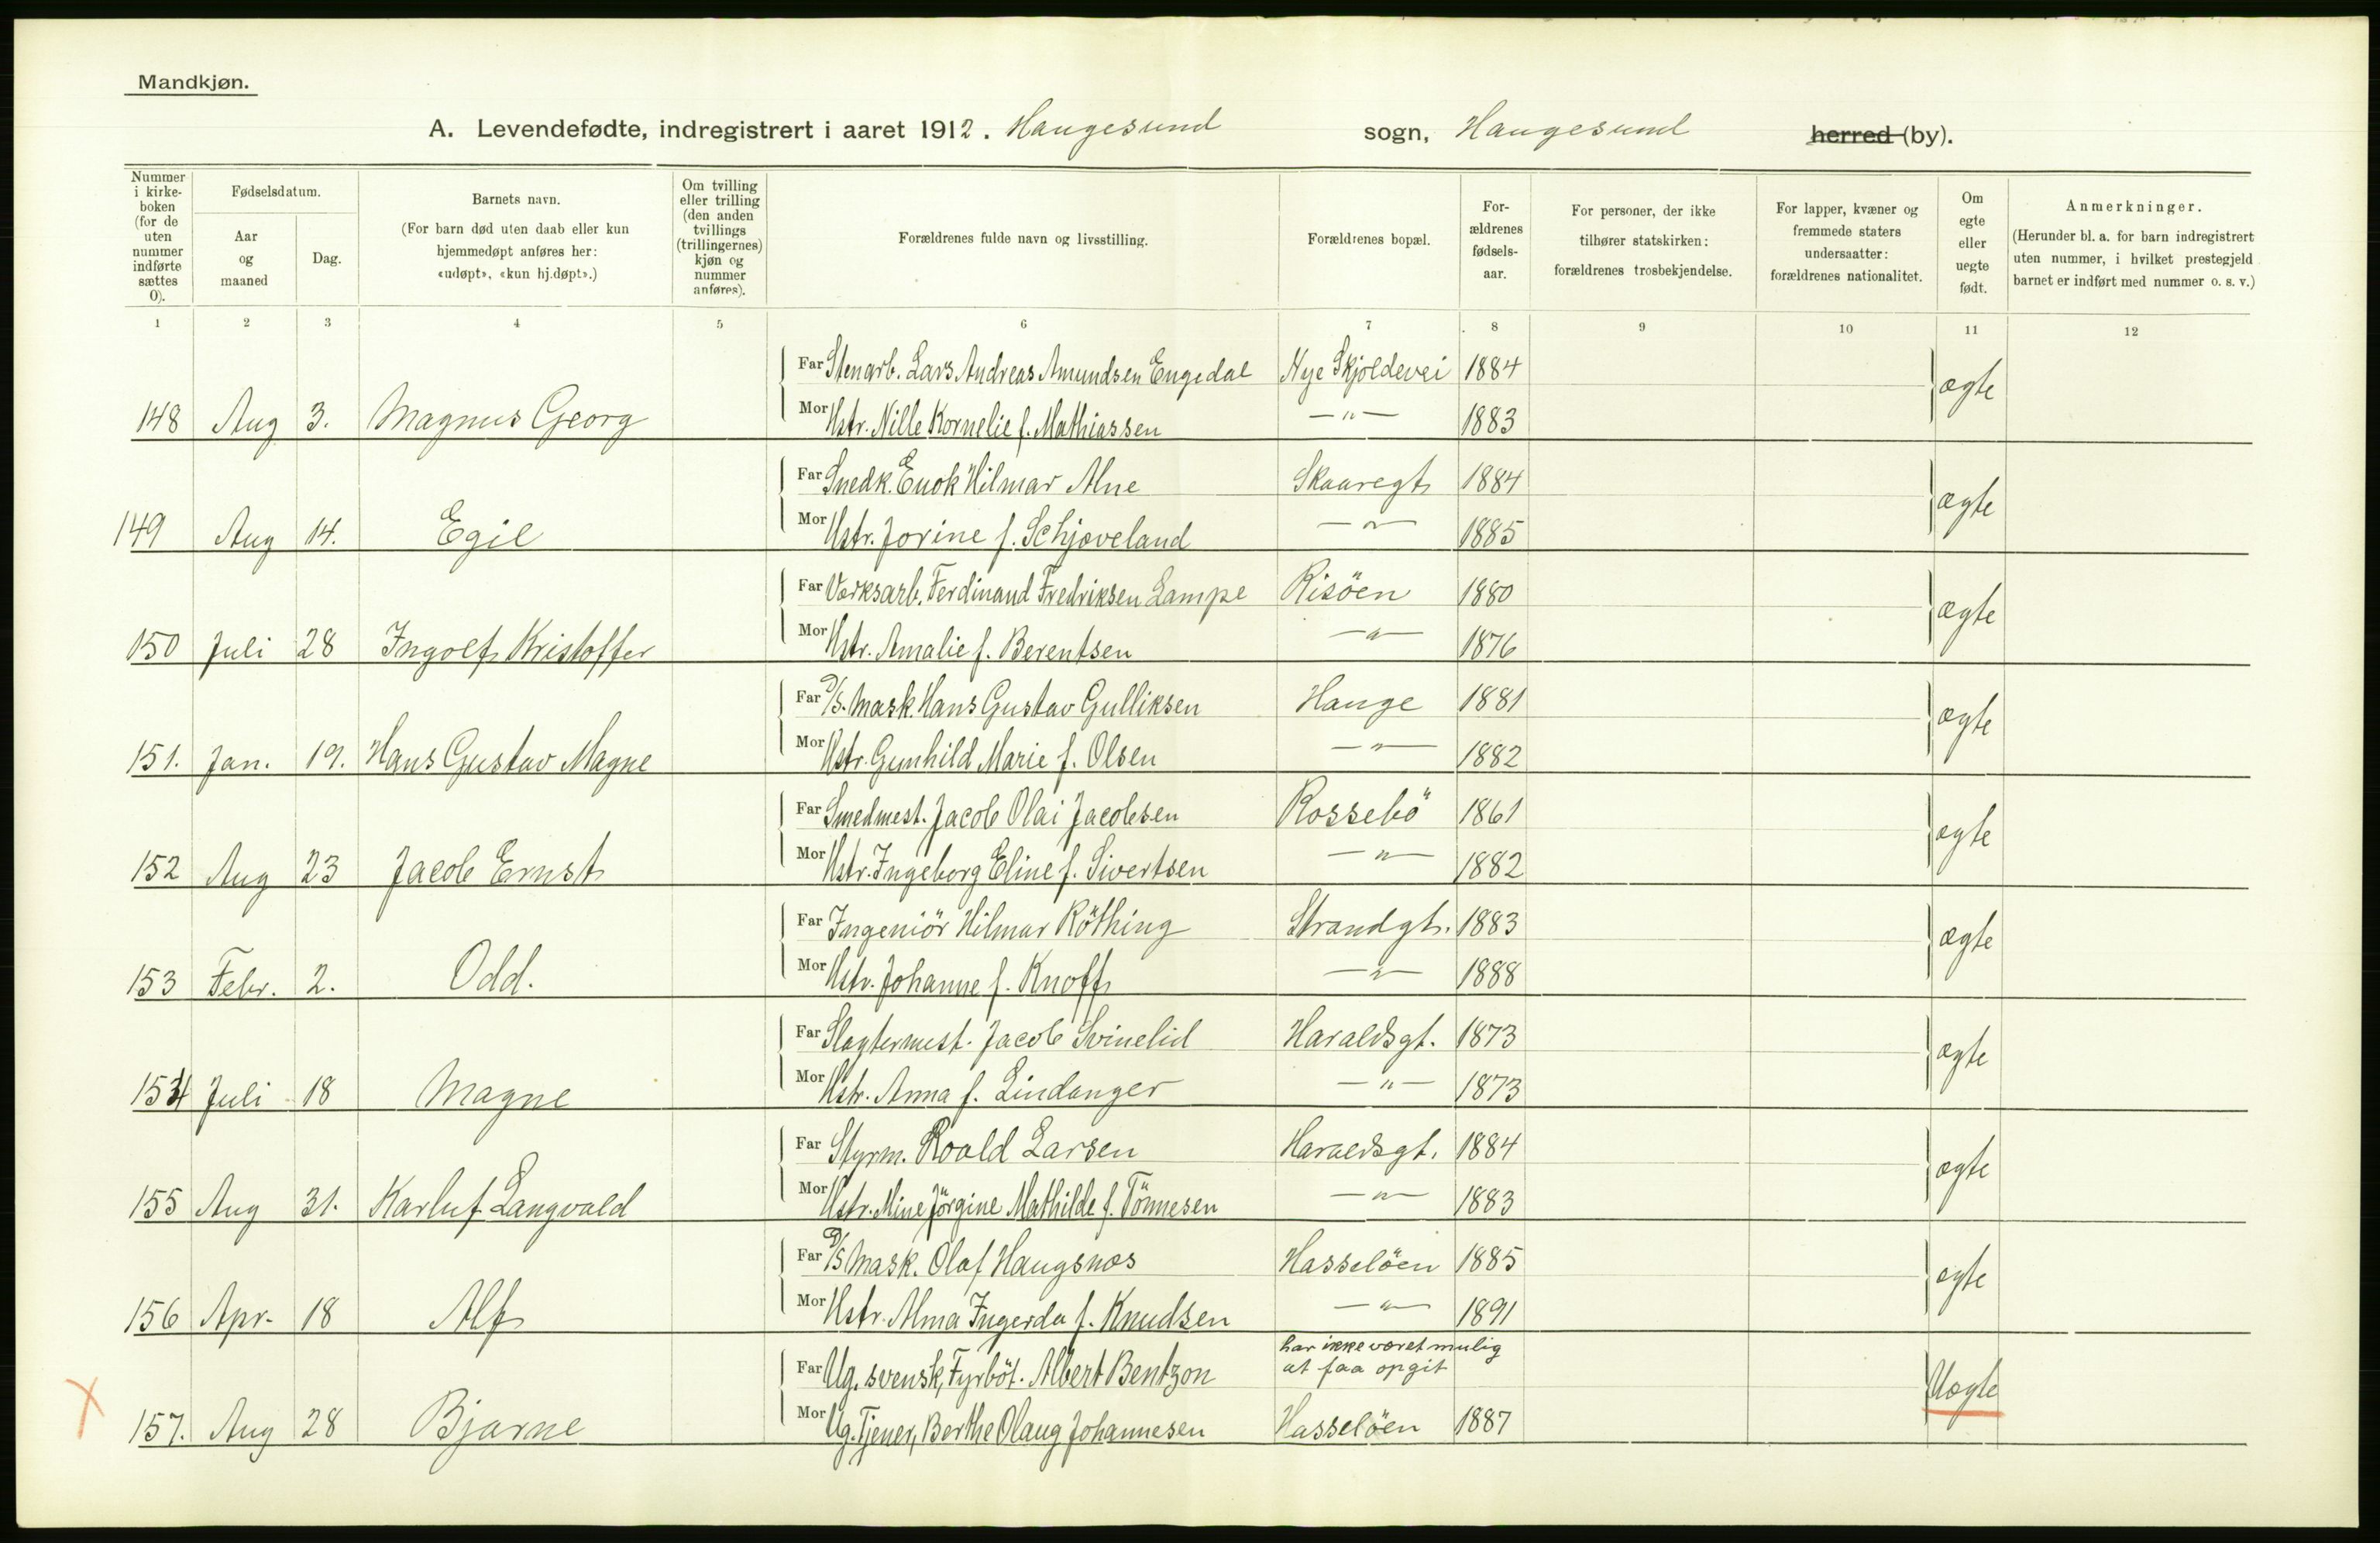 Mandkjøn.
A. Levendefødte, indregistrert i aaret 1912. Haugesund sogn, Haugesund herred (by).
Nummer i kirke-boken (for de uten nummer indførte sættes 0).
Fødselsdatum.
Aar og maaned
Dag.
Barnets navn.
(For barn død uten daab eller kun hjemmedøpt anføres her: «udøpt», «kun hj.døpt».)
Om tvilling eller trilling (den anden tvillings (trillingernes) kjøn og nummer anføres).
Forældrenes fulde navn og livsstilling.
Forældrenes bopæl.
For-ældrenes fødsels-aar.
For personer, der ikke tilhører statskirken: forældrenes trosbekjendelse.
For lapper, kvæner og fremmede staters undersaatter: forældrenes nationalitet.
Om egte eller uegte født.
Anmerkninger.
(Herunder bl. a. for barn indregistrert uten nummer, i hvilket prestegjeld barnet er indført med nummer o. s. v.)
1 2 3 4 5 6 7 8 9 10 11 12
Far Stenarb. Lars Andreas Amundsen Engedal Nye Skjoldevei 1884 ægte
148 Aug 3. Magnus Georg Mor Hstr. Nille Kornelie f. Mathiassen —"— 1883
Far Snedk. Enok Hilmar Alne Skaaregt 1884 ægte
149 Aug 14. Egil Mor Hstr. Jorine f. Schjoveland —"— 1885
Far Værksarb. Ferdinand Fredriksen Lampe Risöen 1880 ægte
150 Juli 28 Ingolf Kristoffer Mor Hstr. Amalie f. Berentsen —"— 1876
Far D/S. Mask. Hans Gustav Gulliksen Hauge 1881 ægte
151. Jan. 19. Hans Gustav Magne Mor Hstr. Gunhild Marie f. Olsen —"— 1882
Far Smedmest. Jacob Olai Jacobsen Rossebö 1861 ægte
152 Aug 23 Jacob Ernst Mor Hstr. Ingeborg Eline f. Sivertsen —"— 1882
Far Ingeniör Hilmar Röthing Strandgt. 1883 ægte
153 Febr. 2. Odd. Mor Hstr. Johanne f. Knoff —"— 1888
Far Slagtermest. Jacob Svinelid Haraldsgt. 1873 ægte
154 Juli 18 Magne Mor Hstr. Anna f. Lindanger —"— 1873
Far Styrm. Roald Larsen Haraldsgt. 1884 ægte
155 Aug 31. Karluf Langvald Mor Hstr. Mine Jörgine Mathilde f. Tönnesen —"— 1883
Far D/S Mask. Olaf Haugsnæs Hasselöen 1885 ægte
156 Apr. 18 Alf Mor Hstr. Alma Ingerda f. Knudsen —"— 1891
har ikke været mulig
Far Ug. svensk, Fyrböt. Albert Bentzon at faa opgit Uægte
157. Aug 28 Bjarne Mor Ug. Tjener, Berthe Olaug Johannesen Hasselöen 1887